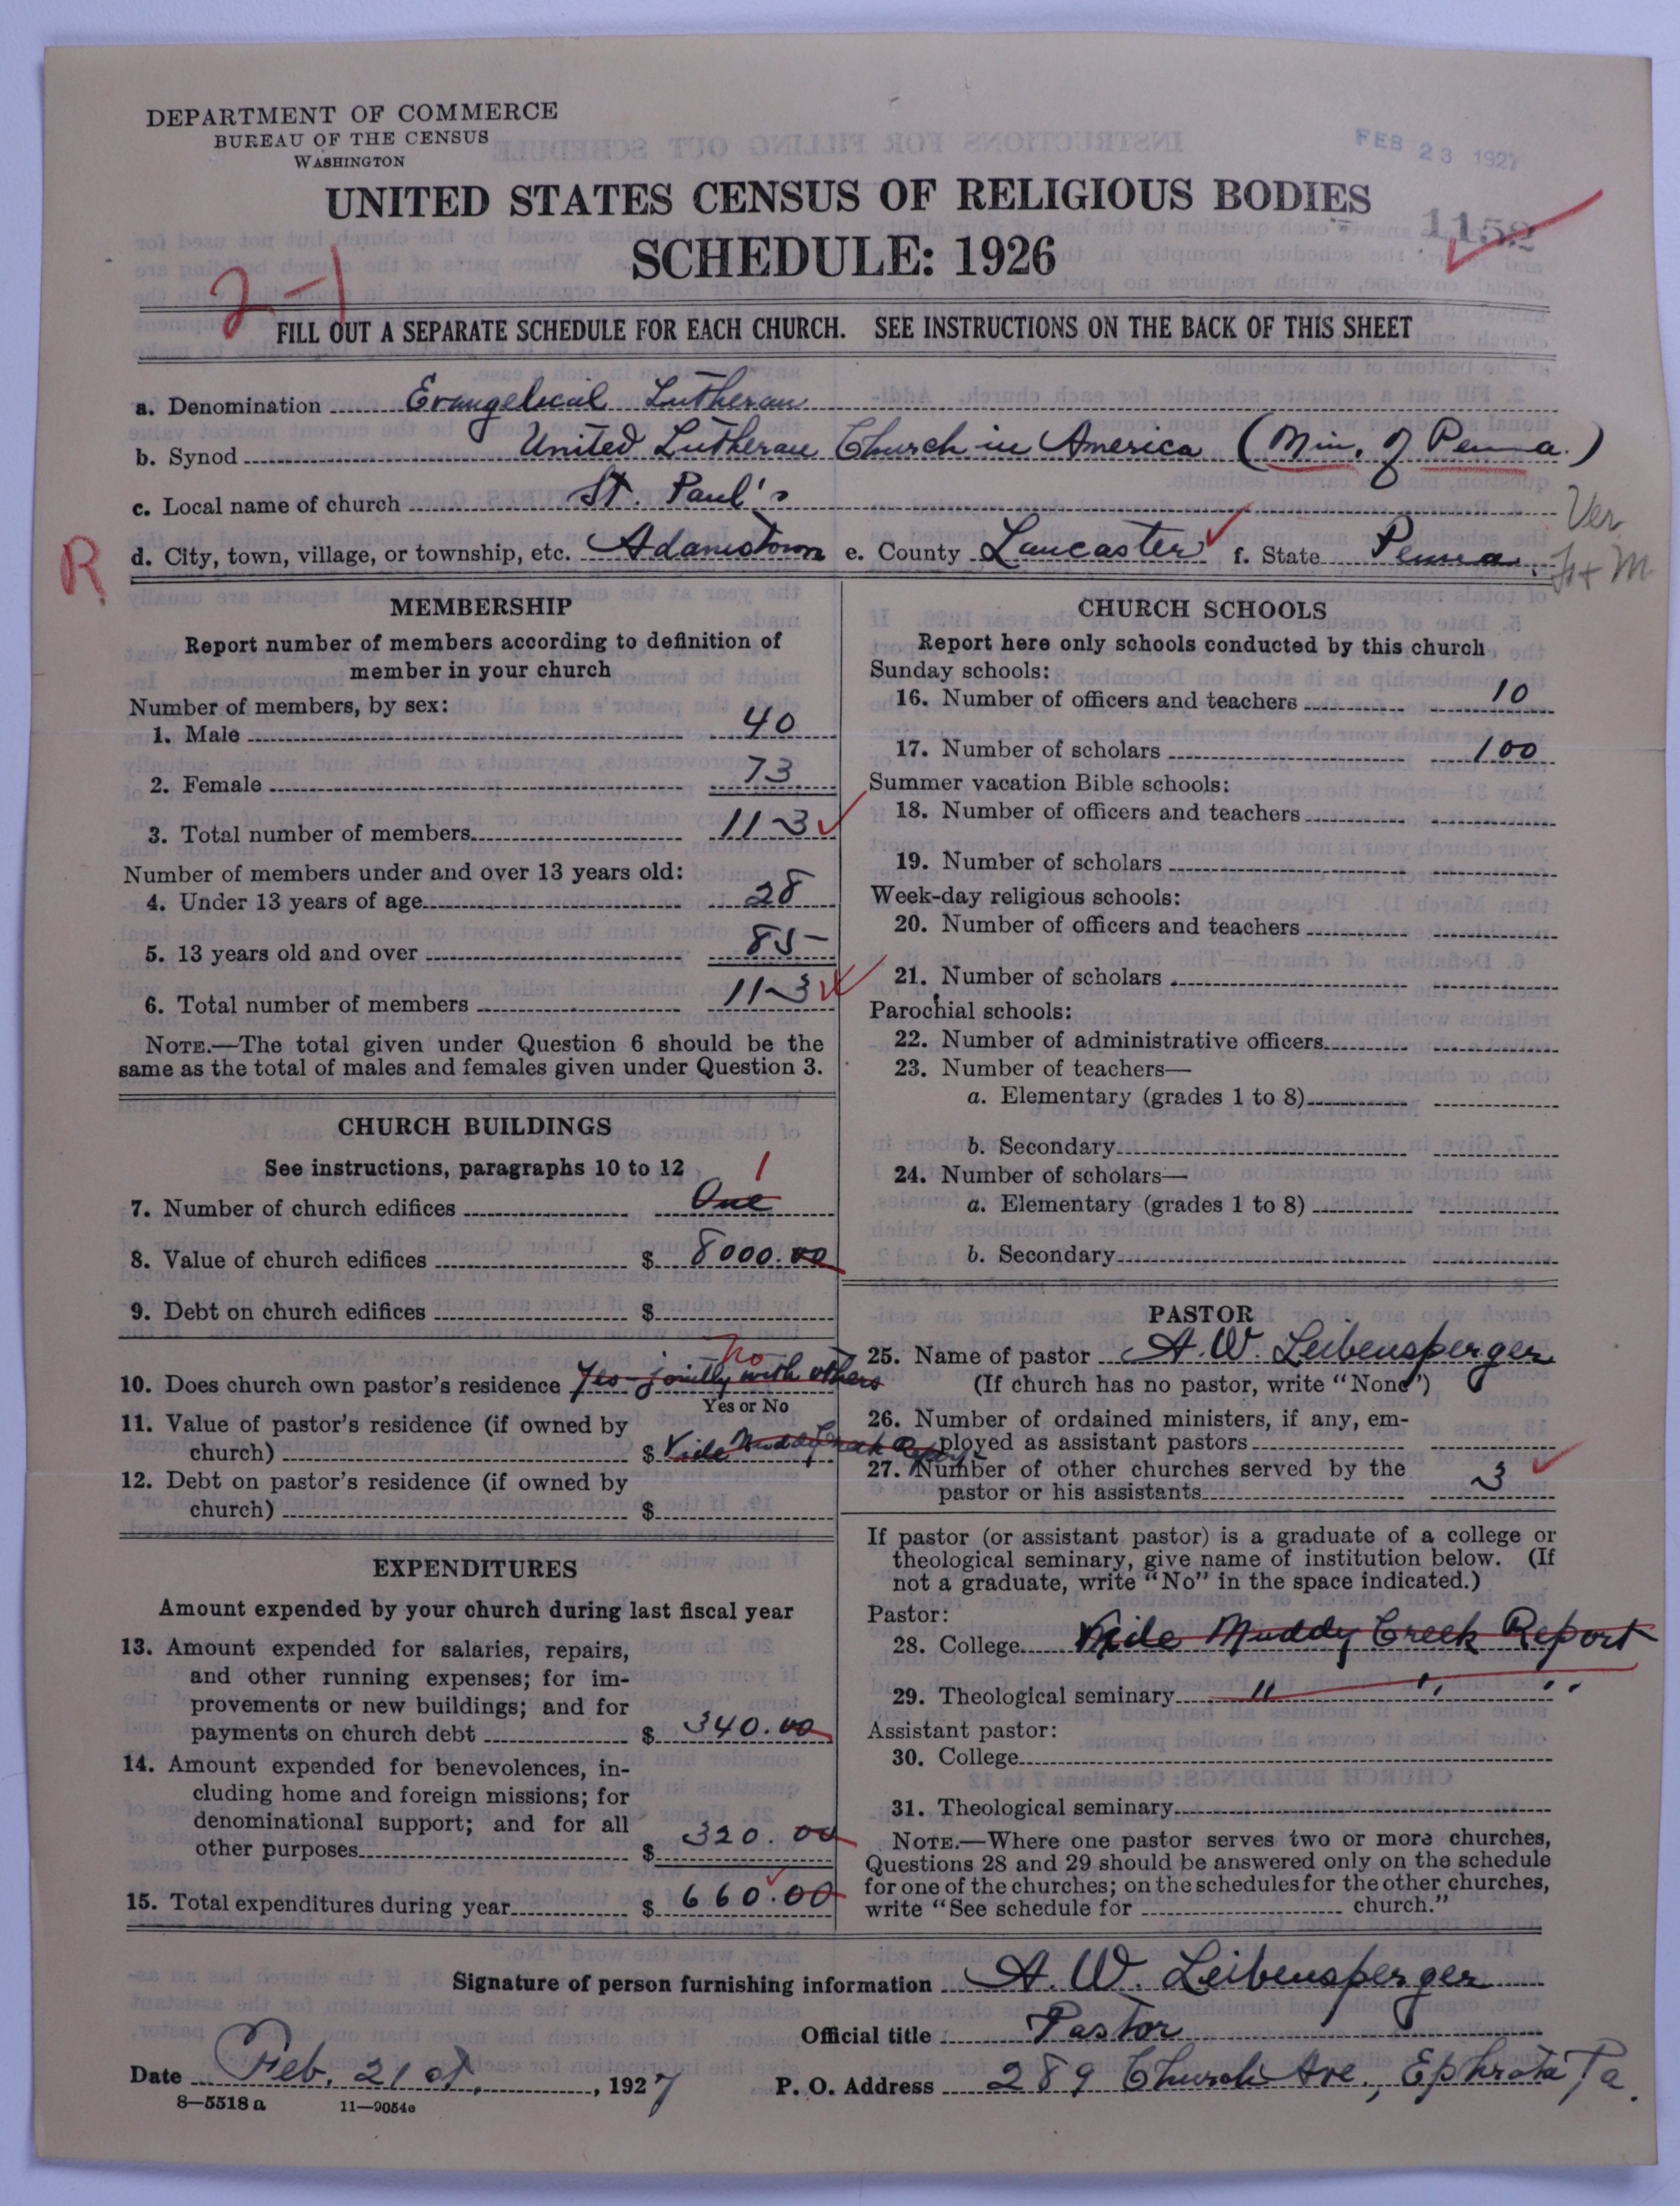 DEPARTMENT OF COMMERCE
BUREAU OF THE CENSUS
WASHINGTON
FEB 23 1927
UNITED STATES CENSUS OF RELIGIOUS BODIES
SCHEDULE: 1926
1152
2-1
FILL OUT A SEPARATE SCHEDULE FOR EACH CHURCH. SEE INSTRUCTIONS ON THE BACK OF THIS SHEET
a. Denomination Evangelical Lutheran
b. Synod United Lutheran Church in America (Min. of Penna.)
c. Local name of church St. Paul's
Ver
R
d. City, town, village, or township, etc. Adamstown e. County Lancaster f. State Penna.
MEMBERSHIP
Report number of members according to definition of
member in your church
Number of members, by sex:
1. Male 40
2. Female 73
3. Total number of members 113
Number of members under and over 13 years old:
4. Under 13 years of age 28
5. 13 years old and over 85
6. Total number of members 113
NOTE.—The total given under Question 6 should be the
same as the total of males and females given under Question 3.
CHURCH BUILDINGS
See instructions, paragraphs 10 to 12
1
7. Number of church edifices One
8. Value of church edifices $ 8000.00
9. Debt on church edifices $
No
10. Does church own pastor's residence Yes - jointly with others
Yes or No
11. Value of pastor's residence (if owned by
church) $ Vide Muddy Creek Report
12. Debt on pastor's residence (if owned by
church) $
EXPENDITURES
Amount expended by your church during last fiscal year
13. Amount expended for salaries, repairs,
and other running expenses; for im-
provements or new buildings; and for
payments on church debt $ 340.00
14. Amount expended for benevolences, in-
cluding home and foreign missions; for
denominational support; and for all
other purposes $ 320.00
15. Total expenditures during year $ 660.00
CHURCH SCHOOLS
Report here only schools conducted by this church
Sunday schools:
16. Number of officers and teachers 10
17. Number of scholars 100
Summer vacation Bible schools:
18. Number of officers and teachers
19. Number of scholars
Week-day religious schools:
20. Number of officers and teachers
21. Number of scholars
Parochial schools:
22. Number of administrative officers
23. Number of teachers—
a. Elementary (grades 1 to 8)
b. Secondary
24. Number of scholars—
a. Elementary (grades 1 to 8)
b. Secondary
PASTOR
25. Name of pastor A. W. Leibensperger
(If church has no pastor, write "None")
26. Number of ordained ministers, if any, em-
ployed as assistant pastors
27. Number of other churches served by the
pastor or his assistants 3
If pastor (or assistant pastor) is a graduate of a college or
theological seminary, give name of institution below. (If
not a graduate, write "No" in the space indicated.)
Pastor:
28. College Vide Muddy Creek Report
29. Theological seminary " " "
Assistant pastor:
30. College
31. Theological seminary
NOTE.—Where one pastor serves two or more churches,
Questions 28 and 29 should be answered only on the schedule
for one of the churches; on the schedules for the other churches,
write "See schedule for church."
Signature of person furnishing information A. W. Leibensperger
Official title Pastor
Date Feb. 21st, 1927 P. O. Address 289 Church Ave., Ephrata Pa.
8—5518 a 11—9054e